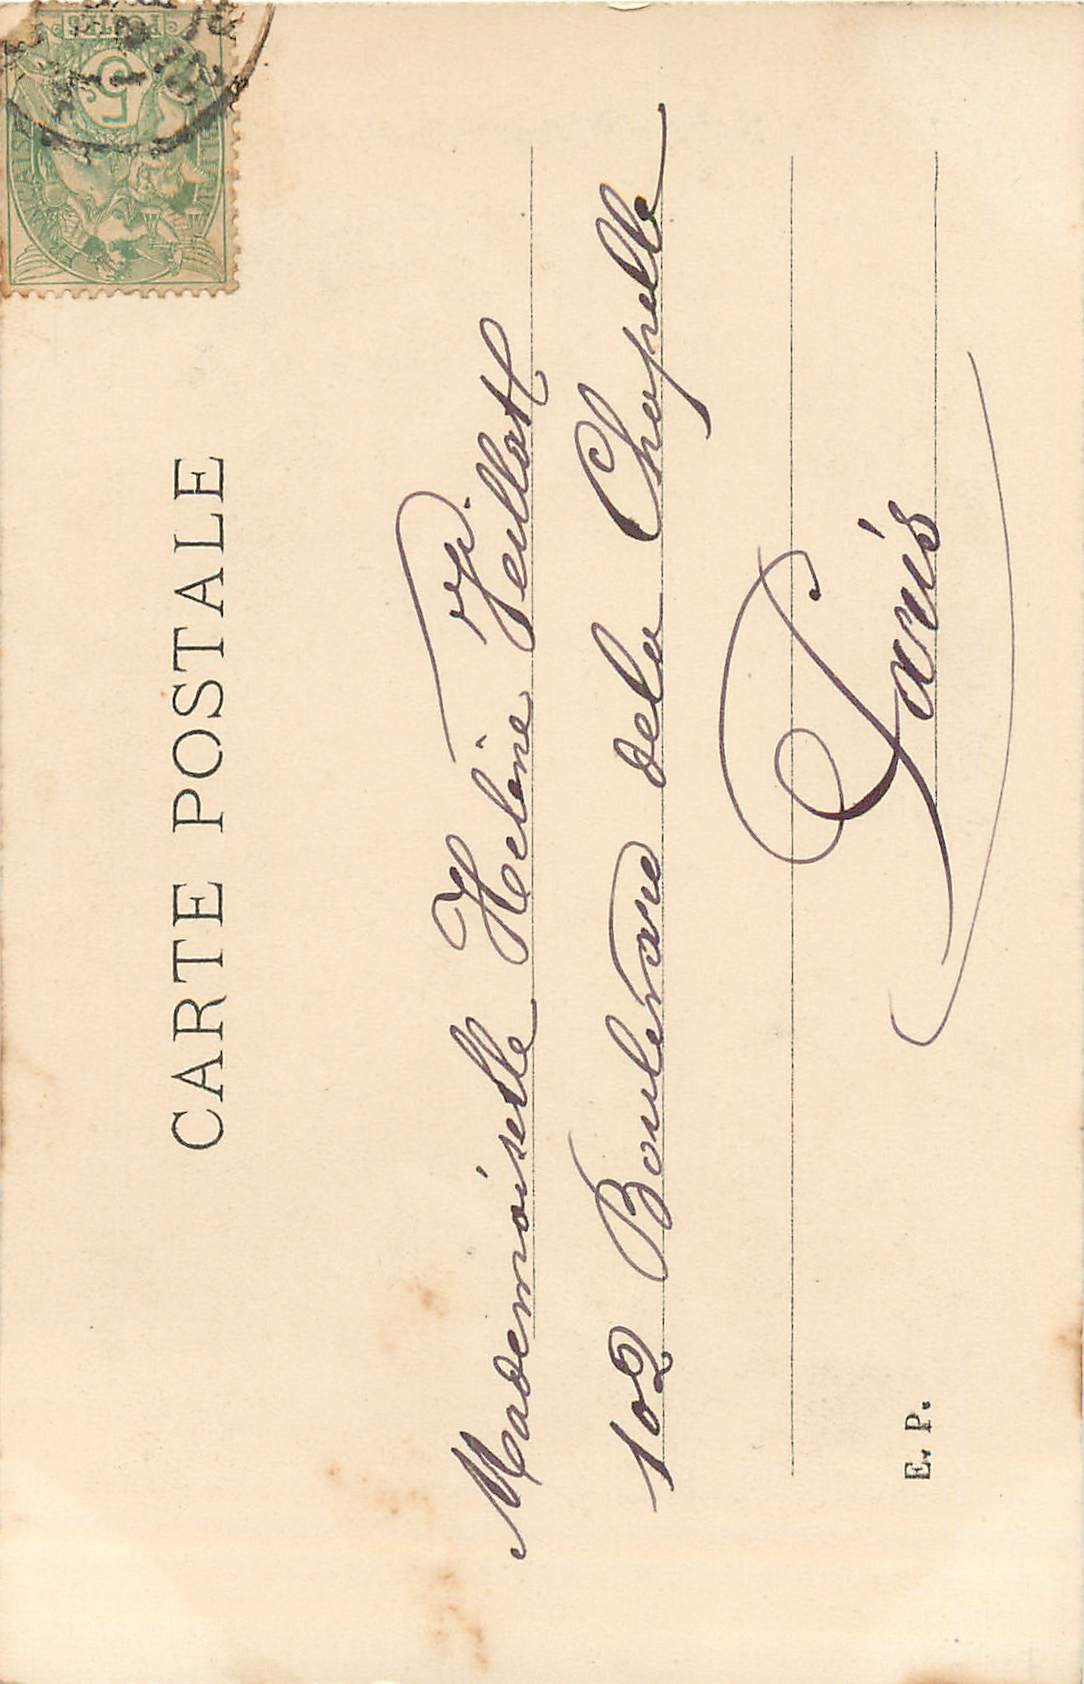 CARTE POSTALE
Mademoiselle Helène
102 Boulevard de la Chapelle
Paris
E. P.
5c
POSTES